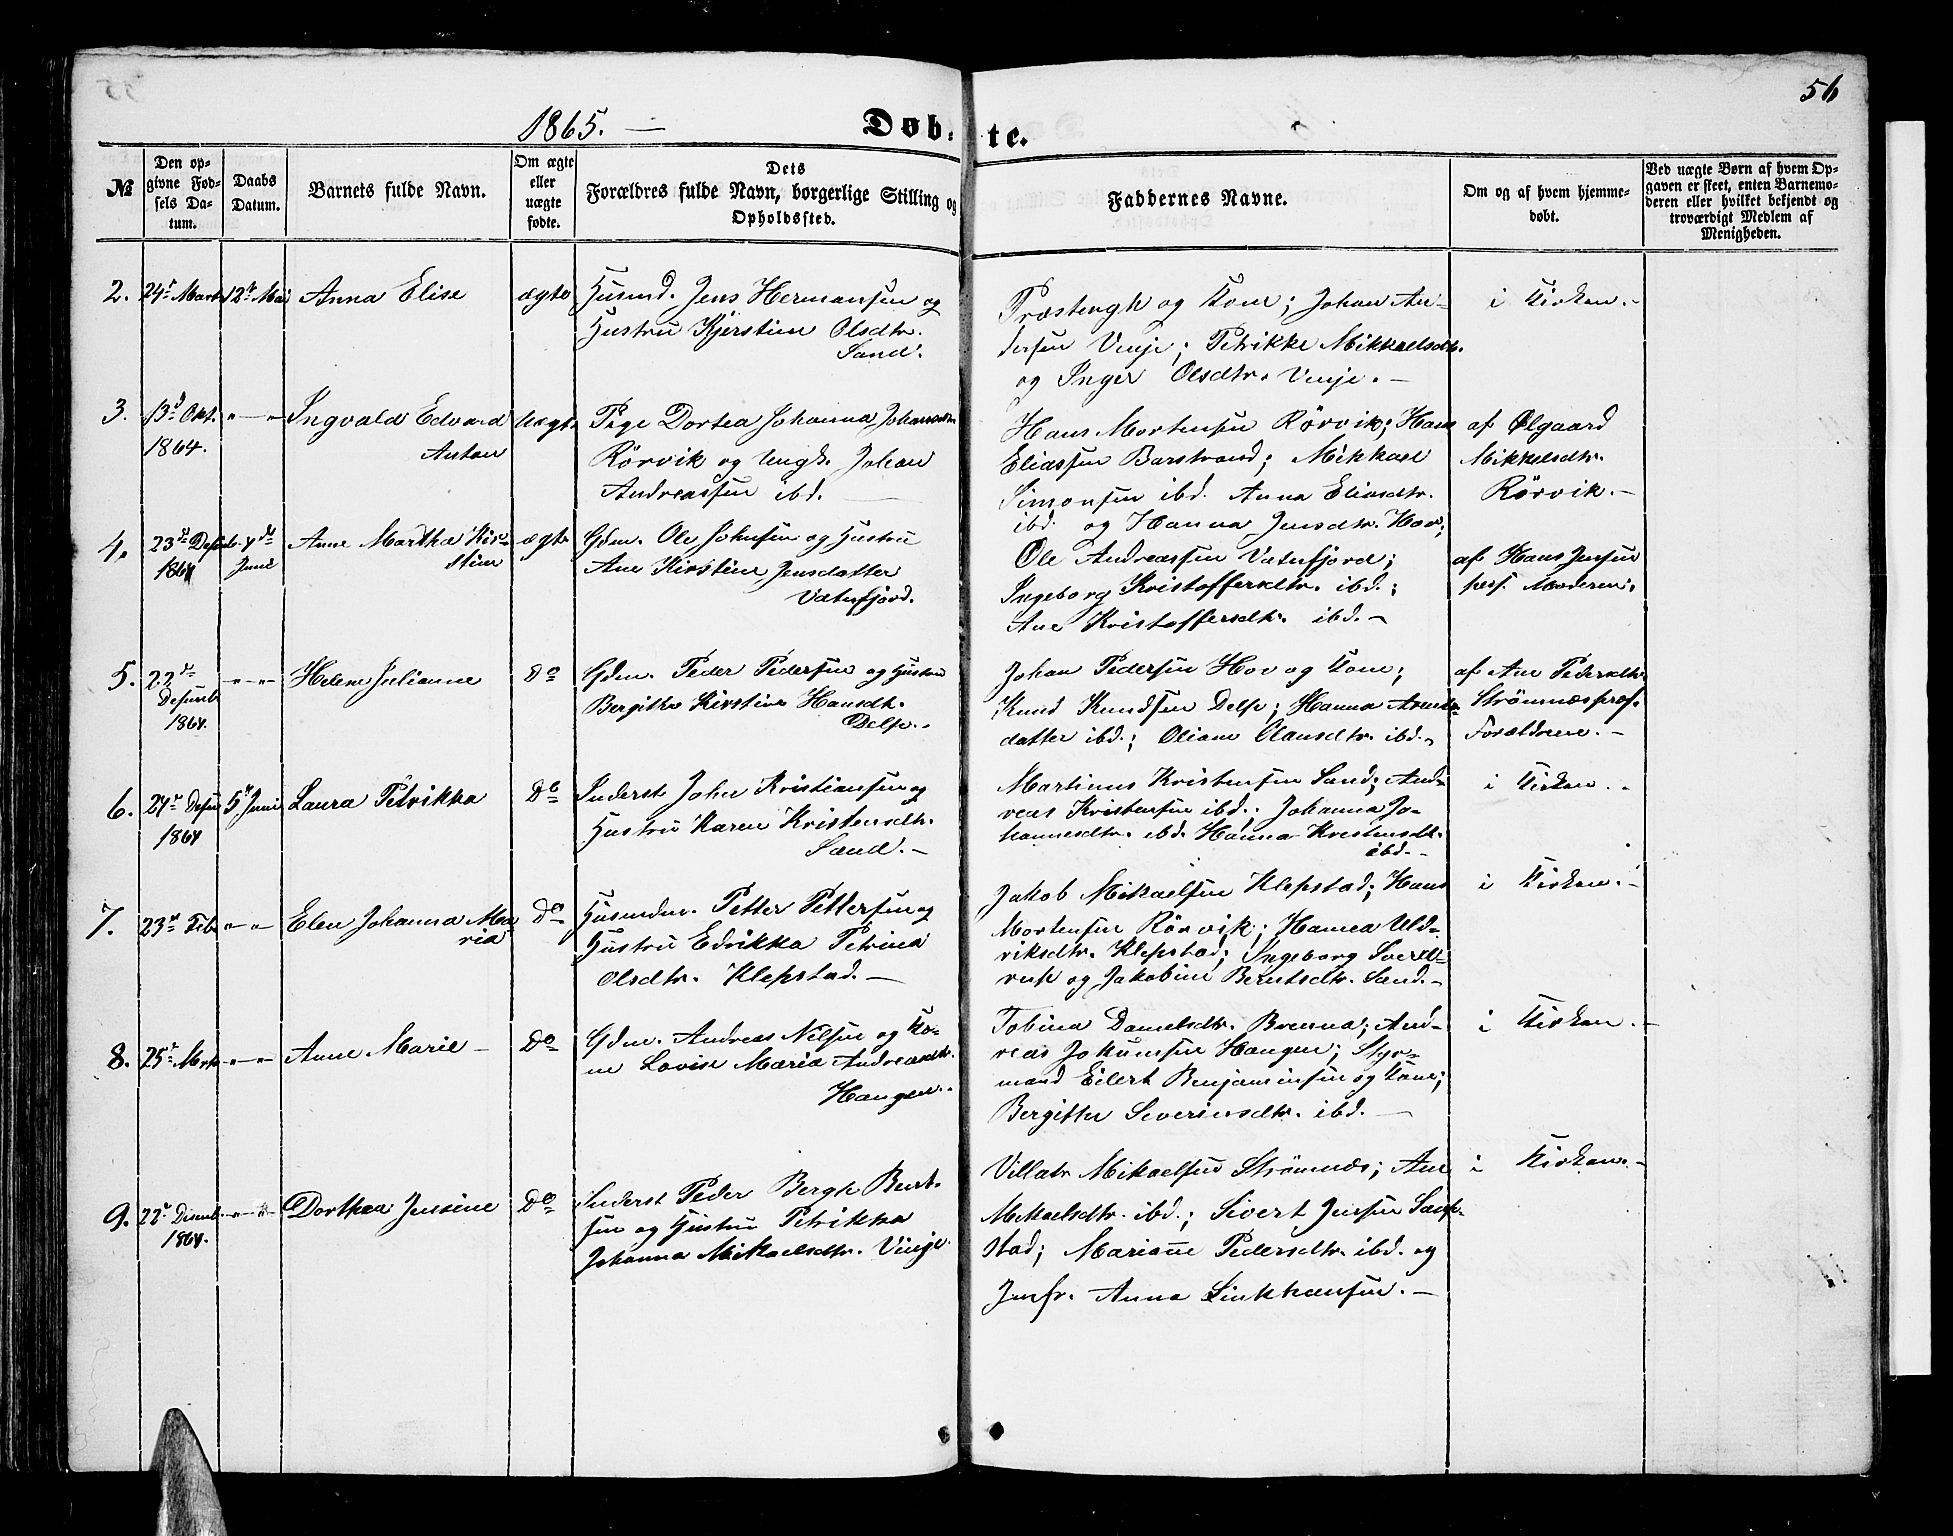 56
1865. —
Døb-te.
№
Den opgivne Fødsels Datum.
Daabs Datum.
Barnets fulde Navn.
Om ægte eller uægte fødte.
Dets Forældres fulde Navn, borgerlige Stilling og Opholdssted.
Faddernes Navne.
Om og af hvem hjemmedøbt.
Ved uægte Børn af hvem Opgaven er skeet, enten Barnemoderen eller hvilket bekjendt og troværdigt Medlem af Menigheden.
2. 24de Marts 12te Mai Anna Elise ægte
Husmd. Jens Hermansen og
Hustru Kjerstine Olsdtr.
Sand.
Præstengh og Kone; Johan An-
dersen Venje; Petrikke Mikkelsdtr.
og Inger Olsdtr. Venje. —
i Kirken. -
3. 13de Okt. 1864. " — " Ingvald Edvard
Anton
Uægte
Pige Dortea Johanna Johansdtr
Rörvik og Ungk. Johan
Andreassen ibd.
Hans Mortensen Rörvik; Hans
Eliassen Barstrand; Mikkael
Simonsen ibd. Anna Eliasdtr.
ibd. og Hanna Jensdtr. Hov;
af Ølgaard
Mikkelsdtr.
Rörvik. -
4. 23de Desemb. 1864 4de Juni Anne Martha Kir-
stine
ægte
Gdm. Ole Johnsen og Hustru
Ane Kirstine Jensdatter
Vatnfjord.
Ole Andreassen Vatnfjord;
Ingeborg Kristoffersdtr. ibd.;
Ane Kristoffersdtr. ibd. -
af Hans Jensen
præs. Moderen.
5. 22de Desemb. 1864. " — " Helene Julianne Do
Gdm. Peder Pedersen og Hustru
Bergithe Kirstine Hansdtr.
Delp. -
Johan Pedersen Hov og Kone;
Knud Knudsen Delp; Hanna Arnts-
datter ibd.; Oliane Clausdtr. ibd. -
af Ane Pedersdtr.
Strömnæs præs.
Forældrene. -
6. 27de Desem 1864 5te Juni Laura Petrikka Do
Inderst John Kristiansen og
Hustru Karen Kristensdtr.
Sand. -
Martinus Kristensen Sand; And-
reas Kristensen ibd.; Johanna Jo-
hannesdtr. ibd. Hanna Kristensdtr.
ibd. -
i Kirken. -
7. 23de Feb. " — " Elen Johanna Ma-
ria
Do
Husmdm. Petter Pettersen og
Hustru Edrikka Petrina
Olsdtr. Klepstad. —
Jakob Mikaelsen Klepstad; Hans
Mortensen Rörvik; Hanna Uld-
riksdtr. Klepstad; Ingeborg
og Jakobine Berntsdtr. Sand. -
i Kirken. -
8. 25de Mrts " — " Anne Marie - Do
Gdm. Andreas Nilsen og Ko-
ne Lovise Maria Andreasdtr.
Haugen. -
Tobina Danielsdtr. Brenna; And-
reas Jokumsen Haugen; Styr-
mand Eilert Benjaminsen og Kone;
Bergitte Severinsdtr. ibd. —
i Kirken. -
9. 22de Desemb. 1864. " — " Dorthea Jensine Do
Inderst Peder Bergh Bernt-
sen og Hustru Petrikka
Johanna Mikaelsdtr. Vinje.
Mikaelsen Strömnæs; Ane
Mikaelsdtr. ibd.; Sivert Jensen Sanp-
stad; Marianne Pedersdtr. ibd. og
Jmfr. Anna Linkhausen. -
i Kirken. -